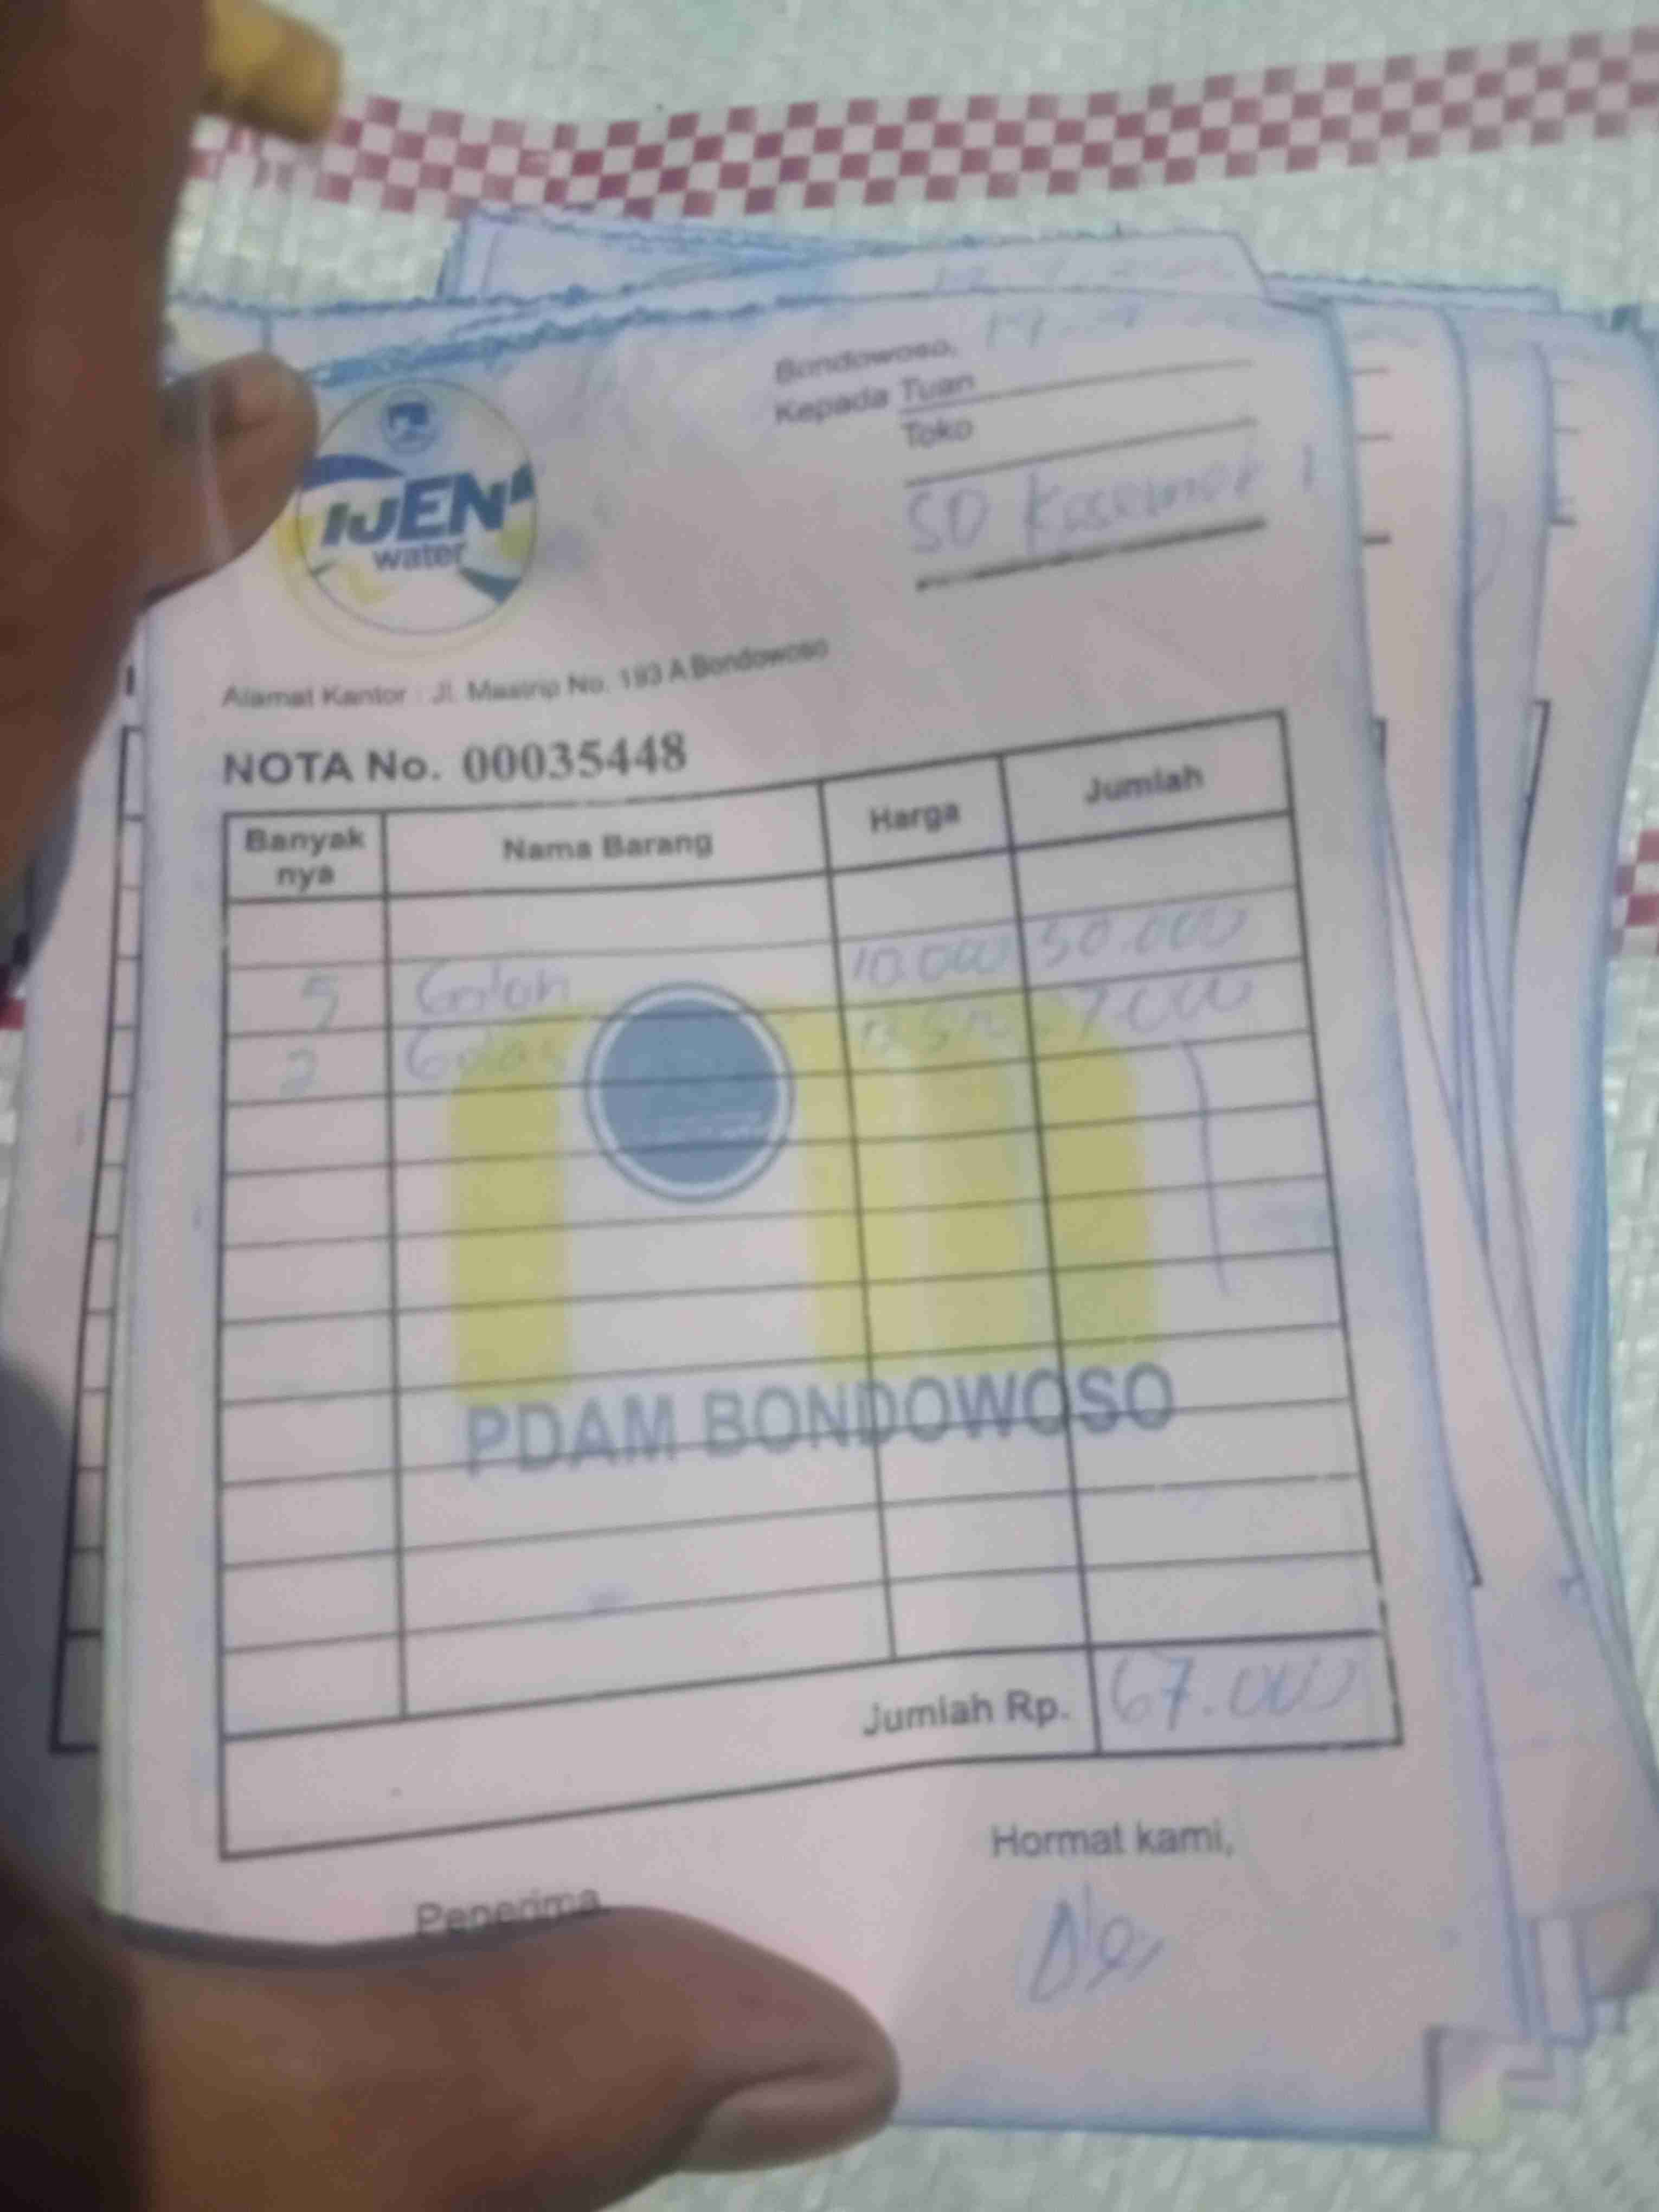 IJEN
water
Bondowoso,
Kepada Tuan
Toko
SD
Alamat Kantor : Jl. Mastrip No. 193 A Bondowoso
NOTA No. 00035448
Banyak nya Nama Barang Harga Jumlah
5 Galon 10.000 50.000
2 Gelas
PDAM BONDOWOSO
Jumlah Rp. 67.000
Hormat kami,
Penerima